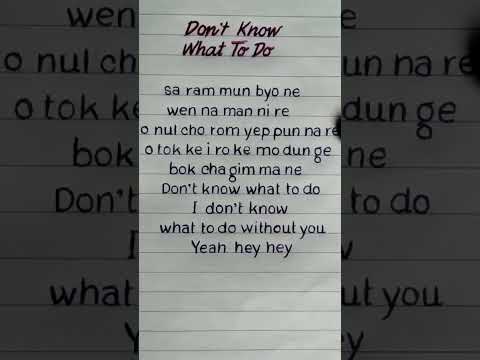 Don't Know
What To Do
sa ram mun byo ne
wen na man ni re
o nul cho rom yep pun na re
o tok ke i ro ke mo dun ge
bok cha gim ma ne
Don't know what to do
I don't know
what to do without you
Yeah hey hey